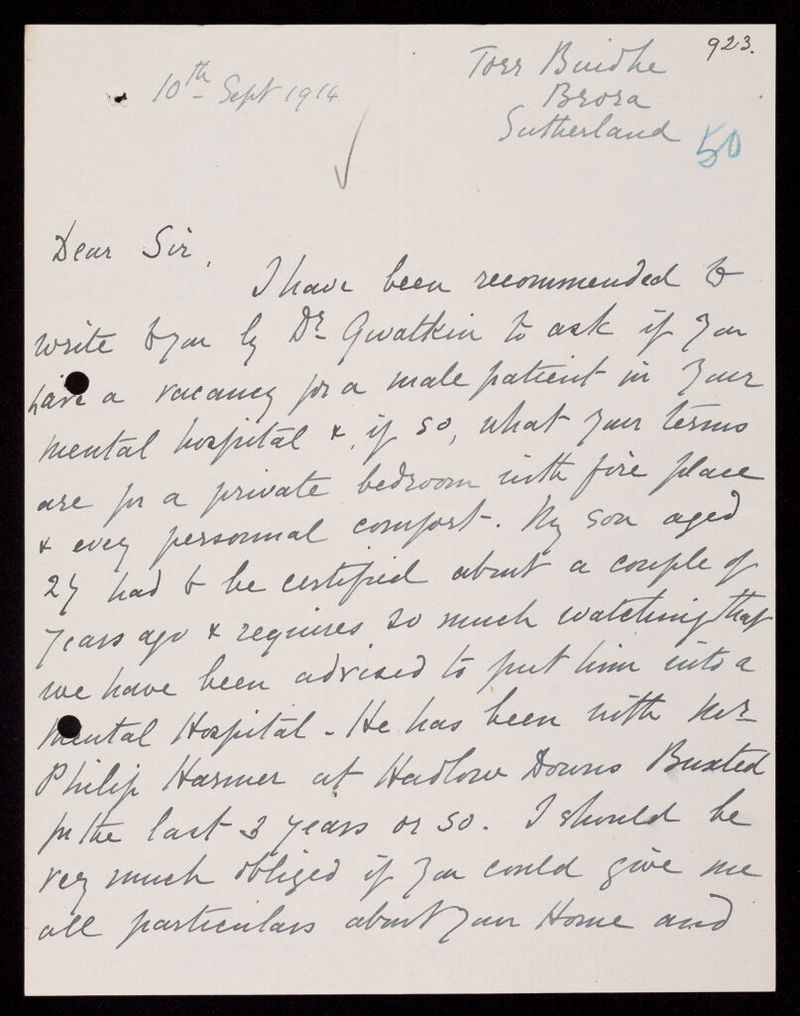 923.
10th Sept 1914
Torr Buidhe
Brora
Sutherland
50
Dear Sir,
I have been recommended to
write to you by Dr Gwatkin to ask if you
have a vacancy for a male patient in your
mental hospital & if so, what your terms
are for a private bedroom with fire place
& every personnal comfort. My son aged
27 had to be certified about a couple of
years ago & requires so much watching that
we have been advised to put him into a
Mental Hospital - He has been with Mr
Philip Harmer at Hadlow Downs Buxted
for the last 3 years or so. I should be
very much obliged if you could give me
all particulars about your Home and